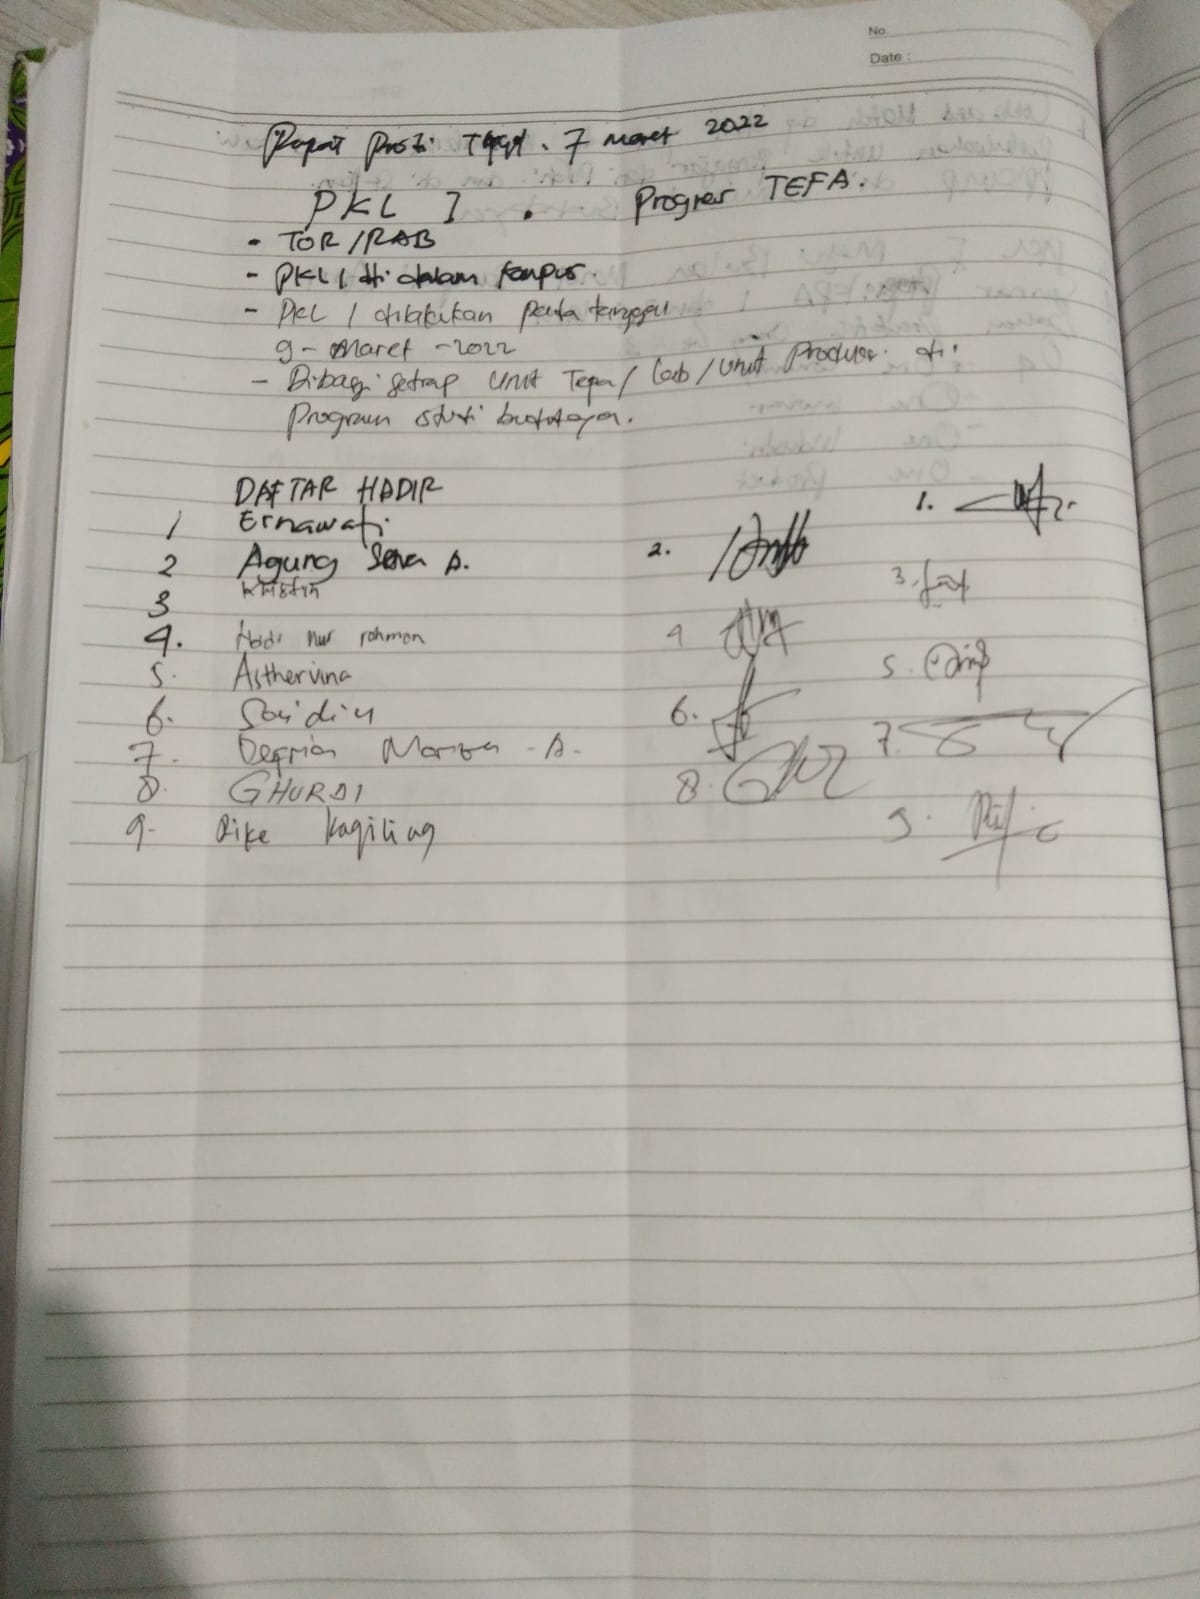 No.
Date :
Rapat Prodi Tggl. 7 Maret 2022
PKL I . Progres TEFA.
- TOR/RAB
- PKL I di dalam kampus.
- PKL I dilakukan pada tanggal
9 - Maret - 2022
- Dibagi setiap Unit Tefa/ Lab/Unit Produksi di
Program studi budidaya.
DAFTAR HADIR
1 Ernawati 1.
2 Agung Setia A. 2.
3 Kristin 3.
4. Hadi nur rohman 4
5. Asthervina 5.
6. Saidin 6.
7. Deqrion Marza - A. 7.
8. GHURDI 8.
9. Rike Kagiling 9.